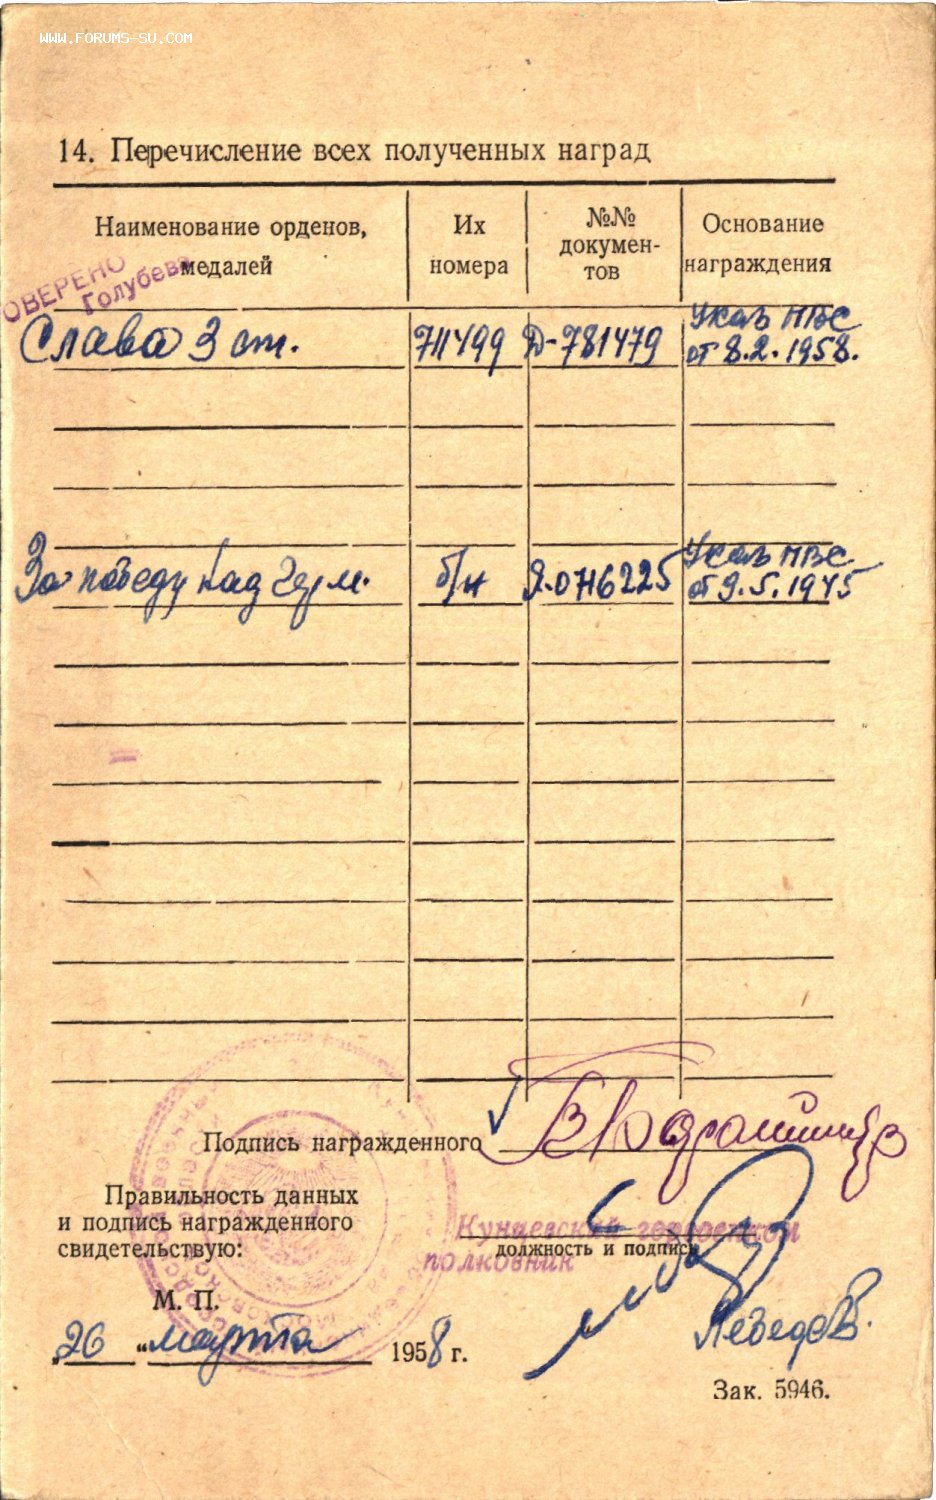 WWW.FORUMS-SU.COM
14. Перечисление всех полученных наград
Наименование орденов, медалей
Их номера
№№ докумен-тов
Основание награждения
ОВЕРЕНО
Голубева
Слава 3 ст. 711499 Д-781479 Указ ПВС от 8.2.1958.
За победу над Герм. б/н Я.0716225 Указ ПВС от 9.5.1945
Подпись награжденного
Правильность данных
и подпись награжденного
свидетельствую:
Кунцевский горвоенком
должность и подпись
полковник
М. П.
Лебедев.
„26 “ марта 1958 г.
Зак. 5946.